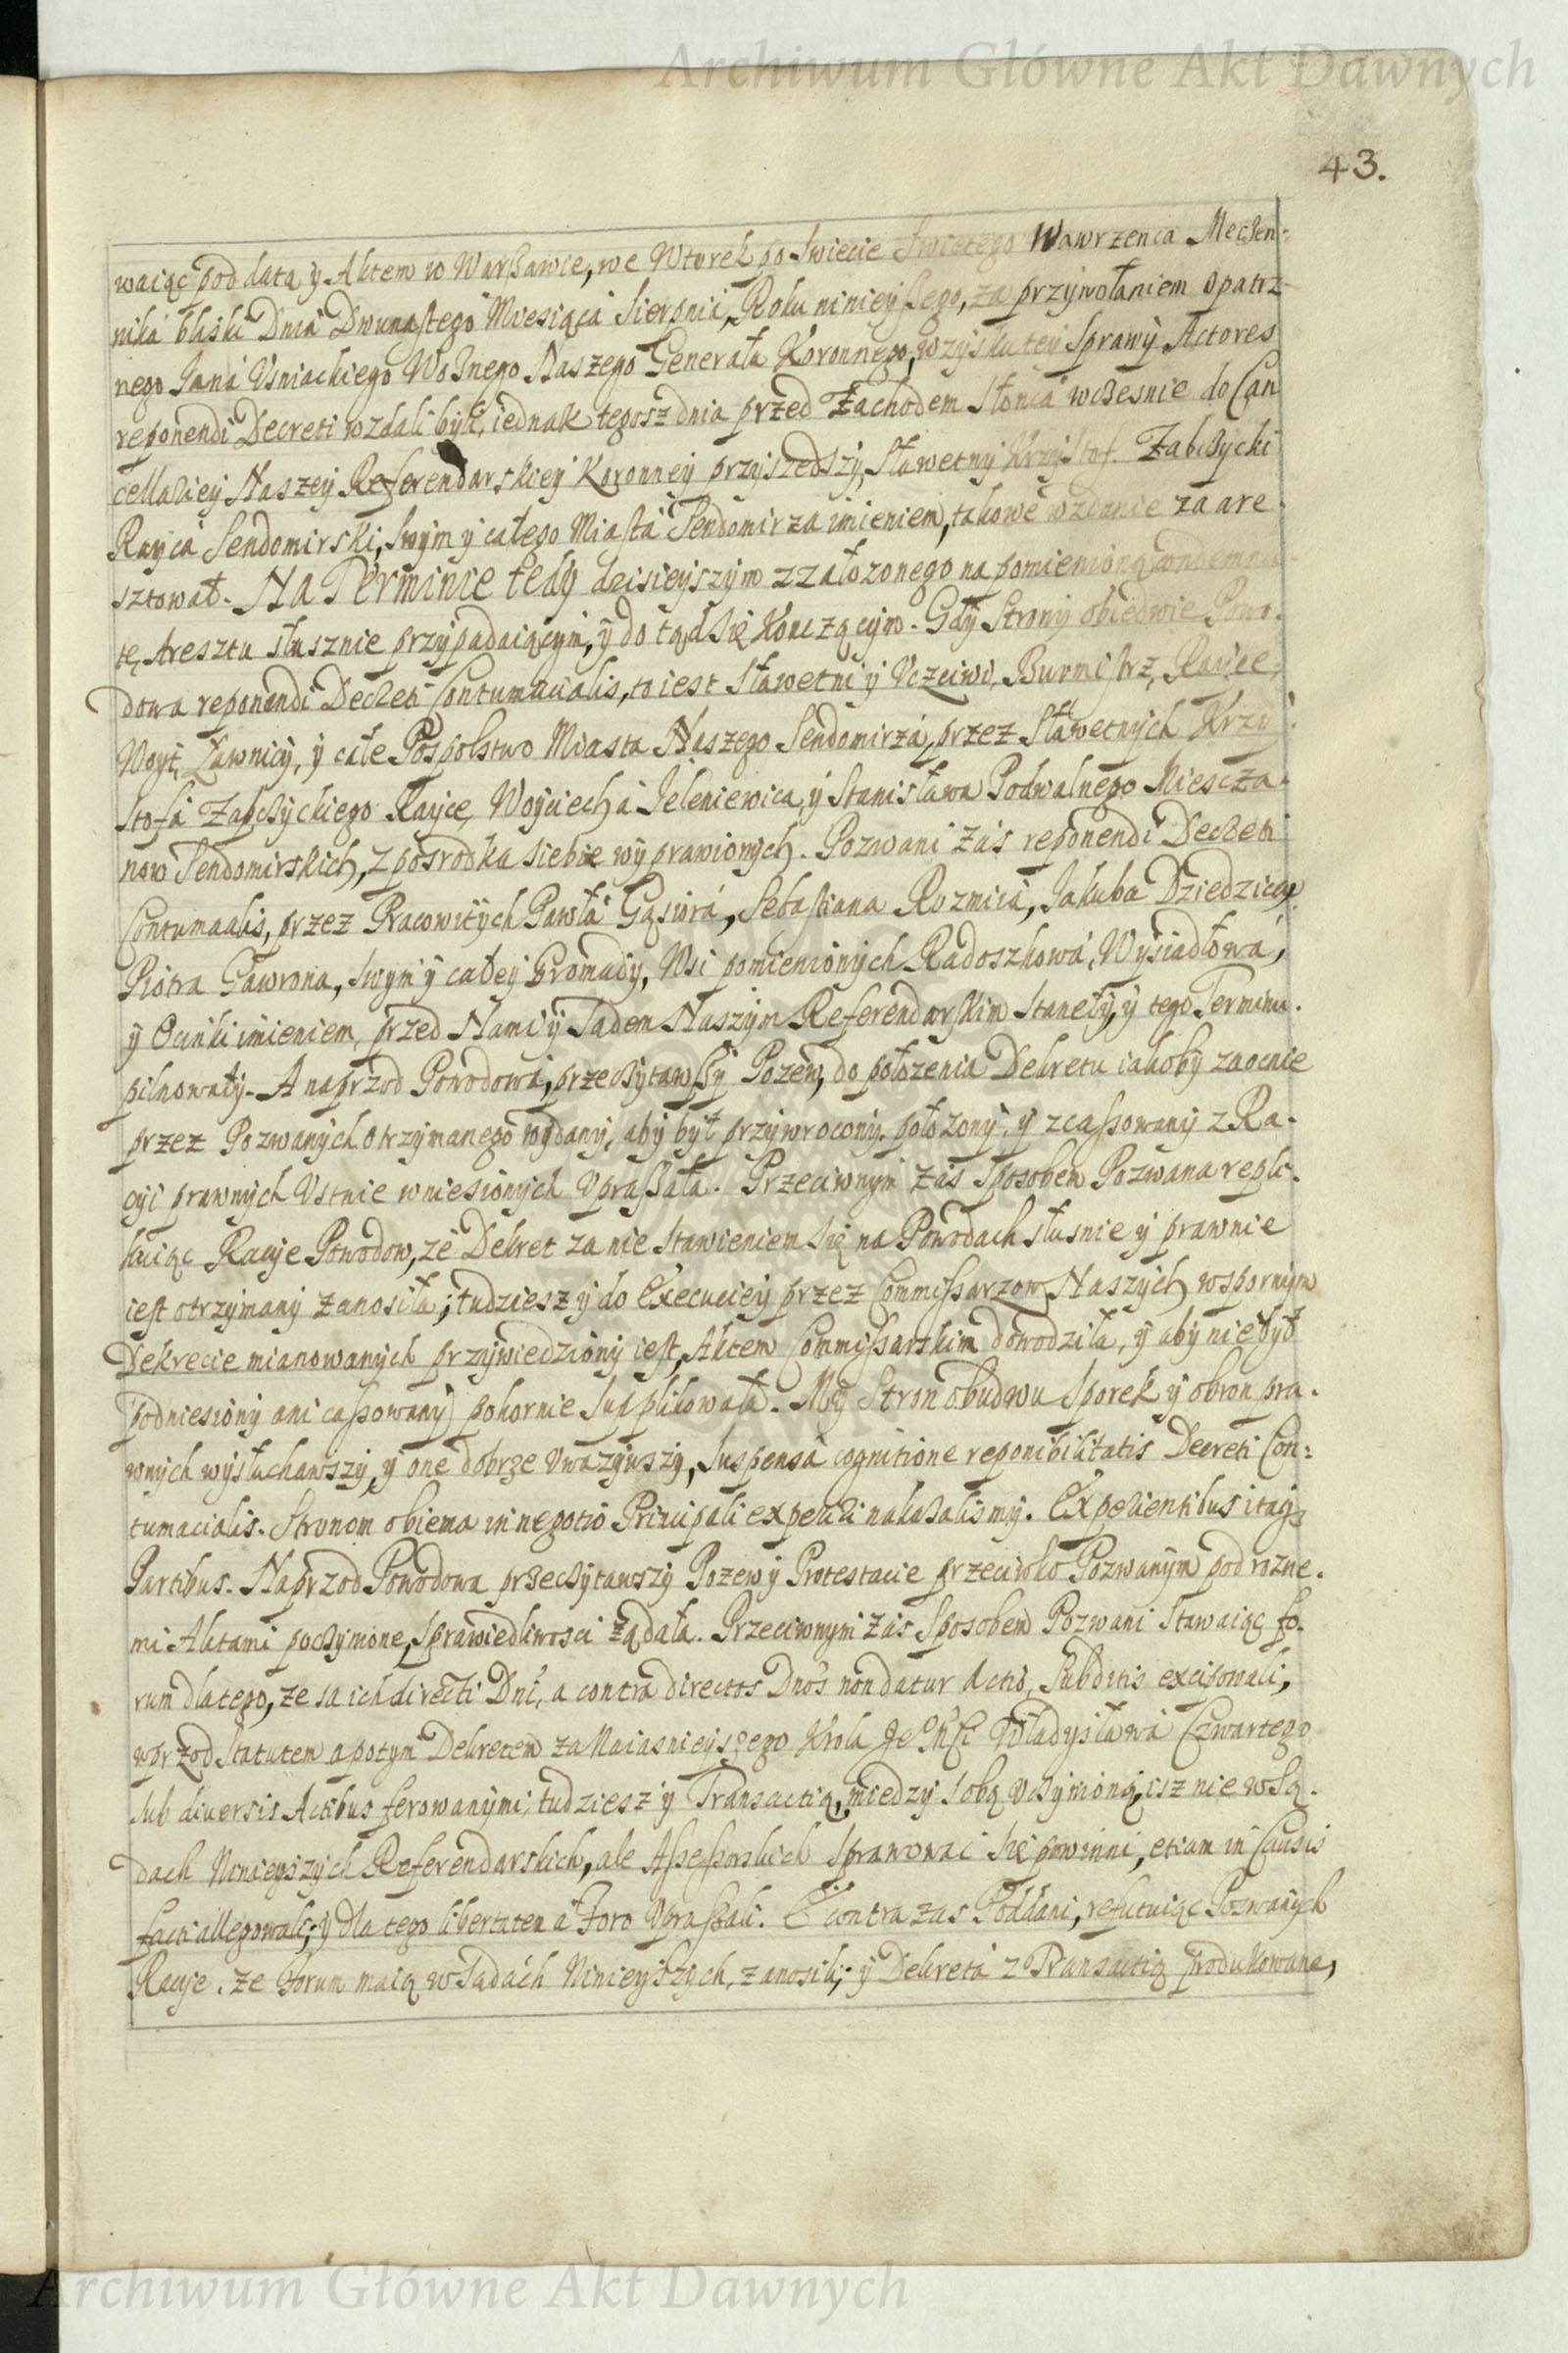 Archiwum Główne Akt Dawnych
43.
waiąc pod datą y Aktem w Warszawie, we Wturek po Swiecie Swietego Wawrzenca Meczen-
nika bliski Dnia Dwunastego Miesiąca Sierpnia, Roku ninieyszego, za przywołaniem Opatrz-
nego Jana Usniackiego Woznego Naszego Generała Koronnego, wzysku tey Sprawy Actores
reponendi Decreti wzdali byli, iednak tegosz dnia przed Zachodem Słonca wczesnie do Can
cellariey Naszey Referendarskiey Koronney przyszedszy, Sławetny Krzysztof Zabczycki
Rayca Sendomirski, swym y całego Miasta Sendomirza imieniem, takowe wzdanie zaare-
sztował. Na Terminie tedy dzisieyszym z założonego na pomienioną condemna-
tę, Aresztu słusznie przypadaiącym, y do tąd się konczącym. Gdy Strony obiedwie Powo-
dowa reponendi Decreti Contumacialis, to iest Sławetni y Uczciwi, Burmistrz, Rayce,
Woyt, Ławnicy, y całe Pospolstwo Miasta Naszego Sendomirza, przez Sławetnych Krzy-
stofa Zabczyckiego Rayce, Woyciecha Jeleniewica, y Stanisława Podwalnego Miescza-
now Sendomirskich, z posrodka siebie wyprawionych. Pozwani zas reponendi Decreti
Contumacialis, przez Pracowitych Pawła Gąsiora, Sebastiana Kuzmica, Jakuba Dziedzica,
Piotra Gawrona, swym y całey Gromady, Wsi pomienionych Radoszkowa, Wysiadłowa,
y Ocinki imieniem, przed Nami y Sądem Naszym Referendarskim Stanęły, y tego Terminu
pilnowały. A naprzod Powodowa, przeczytawszy Pozew, do położenia Dekretu iakoby zaocnie
przez Pozwanych otrzymanego wydany, aby był przywrocony, położony, y zcassowany z Ra-
cyi prawnych Ustnie wniesionych Upraszała. Przeciwnym zas sposobem Pozwana repli-
kuiąc Racye Powodow, ze Dekret za nie stawieniem się na Powodach słusnie y prawnie
iest otrzymany zanosiła; tudziesz y do Execuciey przez Commissarzow Naszych wspornym
Dekrecie mianowanych przywiedziony iest, Aktem Commissarskim dowodziła, y aby nie był
podniesiony ani cassowany, pokornie supplikowała. My Stron obudwu Sporek y obron pra-
wnych wysłuchawszy, y one dobrze Uwazywszy, Suspensa cognitione reponibilitatis Decreti Con-
tumacialis. Stronom obiema in negotio Principali experiri nakazalismy. Experientibus itaq
Partibus. Naprzod Powodowa przeczytawszy Pozew y Protestacie przeciwko Pozwanym pod rozne-
mi Aktami poczynione, Sprawiedliwosci ządała. Przeciwnym zas sposobem Pozwani Stawaiąc fo-
rum dlatego, ze są ich directi Dni, a contra directos Dnos non datur Actio, Subditis excipowali,
wprzod Statutem a potym Dekretem za Naiasnieyszego Krola Je Mci Władysława Czwartego
sub diversis Actibus ferowanymi, tudziesz y Transactią, miedzy sobą Uczynioną, isz nie w Są-
dach Ninieyszych Referendarskich, ale Assessorskich sprawowac się powinni, etiam in Causis
facti allegowali; y dla tego libertatem a Foro Upraszali. E contra zas Poddani, refutuiąc Pozwanych
Racye, ze Forum maią w Sądach Ninieyszych, zanosili; y Dekreta z Transactią produkowane,
Archiwum Główne Akt Dawnych